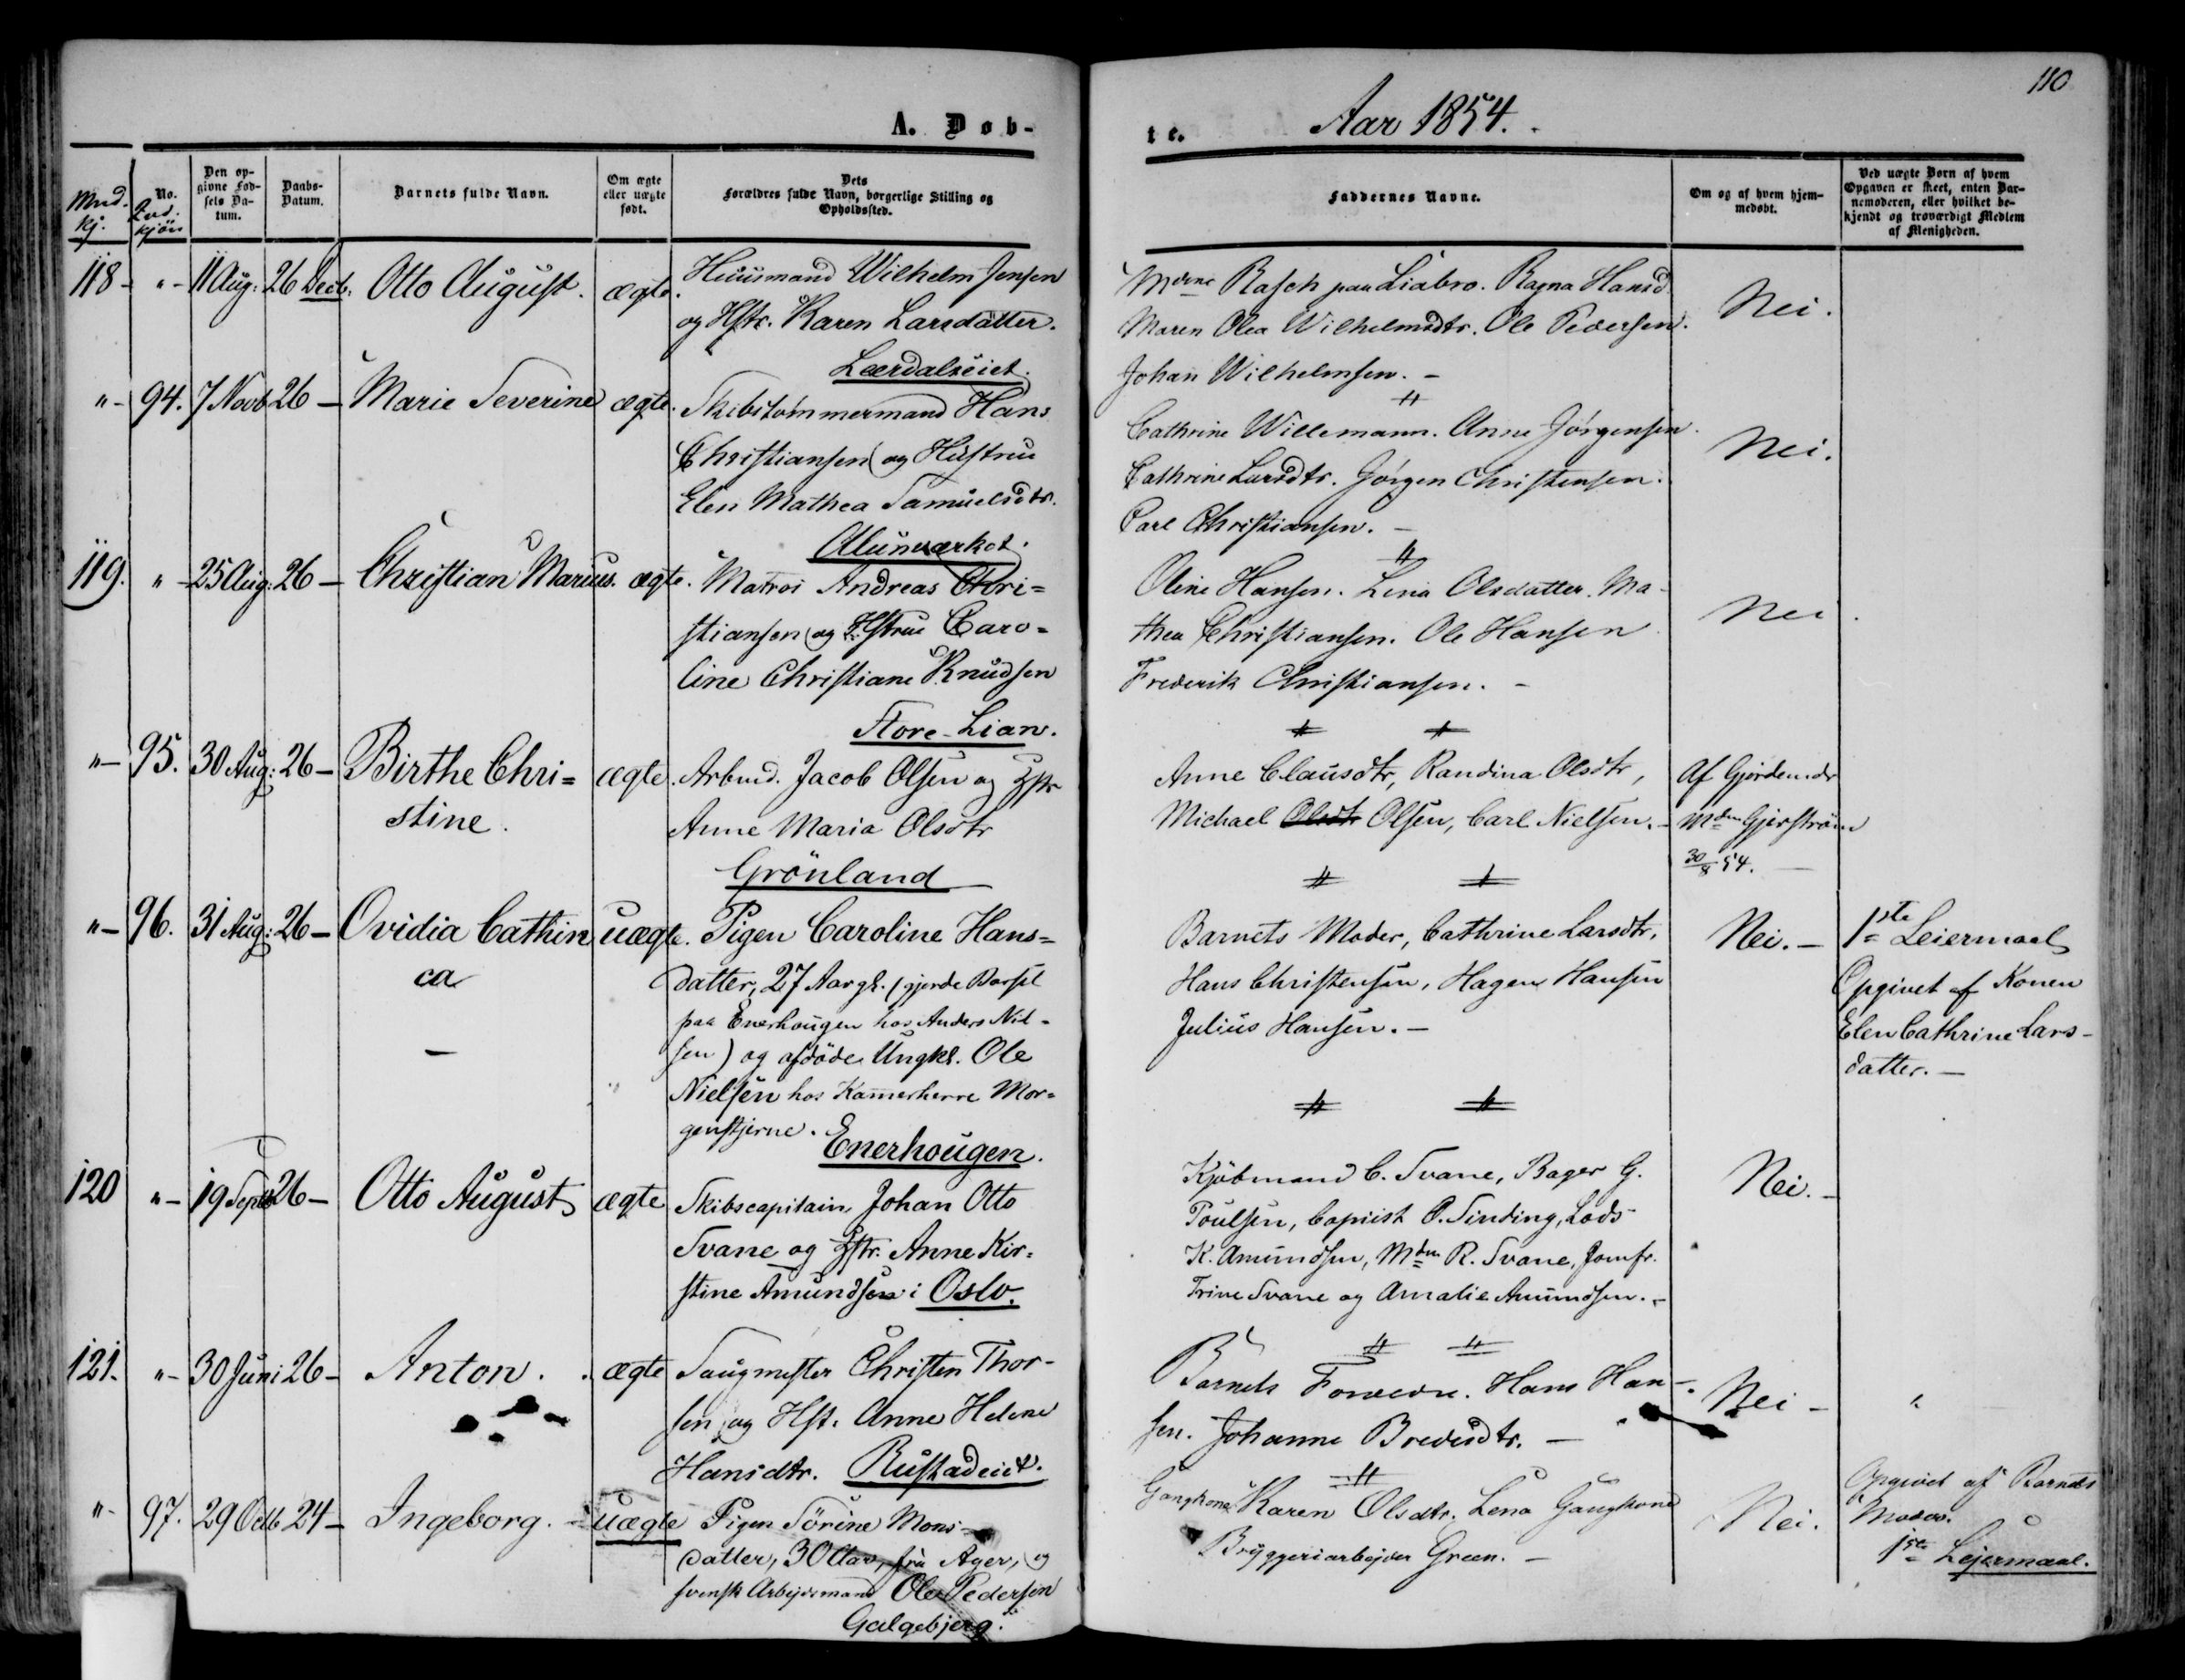 110
A. Døb-
te.
Aar 1854.
Mnd. kj.
No. Qvd. kjön
Den op-
givne Fød-
sels Da-
tum.
Daabs-
Datum.
Barnets fulde Navn.
Om ægte
eller uægte
født.
Dets
Forældres fulde Navn, borgerlige Stilling og
Opholdssted.
Faddernes Navne.
Om og af hvem hjem-
medøbt.
Ved uægte Børn af hvem
Opgaven er skeet, enten Bar-
nemoderen, eller hvilket be-
kjendt og troværdigt Medlem
af Menigheden.
118 - " - 11 Aug: 26 Decb. Otto August. ægte. Huusmand Wilhelm Jensen
og Hstr. Karen Larsdatter.
Leerdalseiet.
Mdme Rasch paa Liabro. Ragna Hansd.
Maren Olea Wilhelmsdtr. Ole Pedersen.
Johan Wilhelmsen. -
Nei.
" - 94. 7 Novb 26 - Marie Severine ægte. Skibstömmermand Hans
Christiansen og Hustrue
Elen Mathea Samuelsdtr.
Alunværket.
Cathrine Willemann. Anne Jörgensen.
Cathrine Larsdtr. Jörgen Christensen.
Carl Christiansen. -
Nei.
119. " - 25 Aug: 26 - Christian Marius. ægte. Matros Andreas Chri=
stiansen og Hstrue Caro=
line Christiane Knudsen
Store-Lian.
Oline Hansen. Lina Olsdatter. Ma-
thea Christiansen. Ole Hansen
Frederik Christiansen. -
Nei.
" - 95. 30 Aug: 26 - Birthe Chri=
stine.
ægte. Arbmd. Jacob Olsen og Hstr
Anne Maria Olsdtr
Grönland
Anne Clausdtr, Randina Olsdtr,
Michael Olsdtr Olsen, Carl Nielsen. -
Af Gjordemdr
Mdm Gjerström
30/8 54.
" - 96. 31 Aug: 26 - Ovidia Cathin
ca
-
uægte. Pigen Caroline Hans=
datter, 27 Aar gl. (gjorde Barsel
paa Enerhougen hos Anders Nil-
sen) og afdöde Ungkl. Ole
Nielsen hos Kammerherre Mor=
genstjerne. Enerhougen.
Barnets Moder, Cathrine Larsdtr,
Hans Christensen, Hagen Hansen
Julius Hansen. -
Nei. -
1ste Leiermaal
Opgivet af Konen
Elen Cathrine Lars-
datter. -
120 " - 19 Septb 26 - Otto August ægte Skibscapitain Johan Otto
Svane og Hstr. Anne Kir=
stine Amundsen i Oslo.
Kjöbmand C. Svane, Bager G.
Poulsen, Copiist O. Sinding, Lods
K. Amundsen, Mdm R. Svane, Jomfr.
Trine Svane og Amalie Amundsen. -
Nei. -
121. " - 30 Juni 26 - Anton. ægte Saugmester Christen Thor-
sen og Hst. Anne Helene
Hansdtr. Rustadeiet.
Barnets Forældre. Hans Han-
sen. Johanne Bredesdtr. -
Nei -
"
" - 97. 29 Octb 24 - Ingeborg. - uægte Pigen Sörine Mons-
datter, 30 Aar, fra Ager, og
svensk Arbejdsmand Ole Pedersen
Galgebjerg.
Gangkone Karen Olsdtr. Lena Gangkone
Bryggeriarbejder Green. -
Nei.
Opgivet af Barnets
Moder.
1ste Lejermaal.